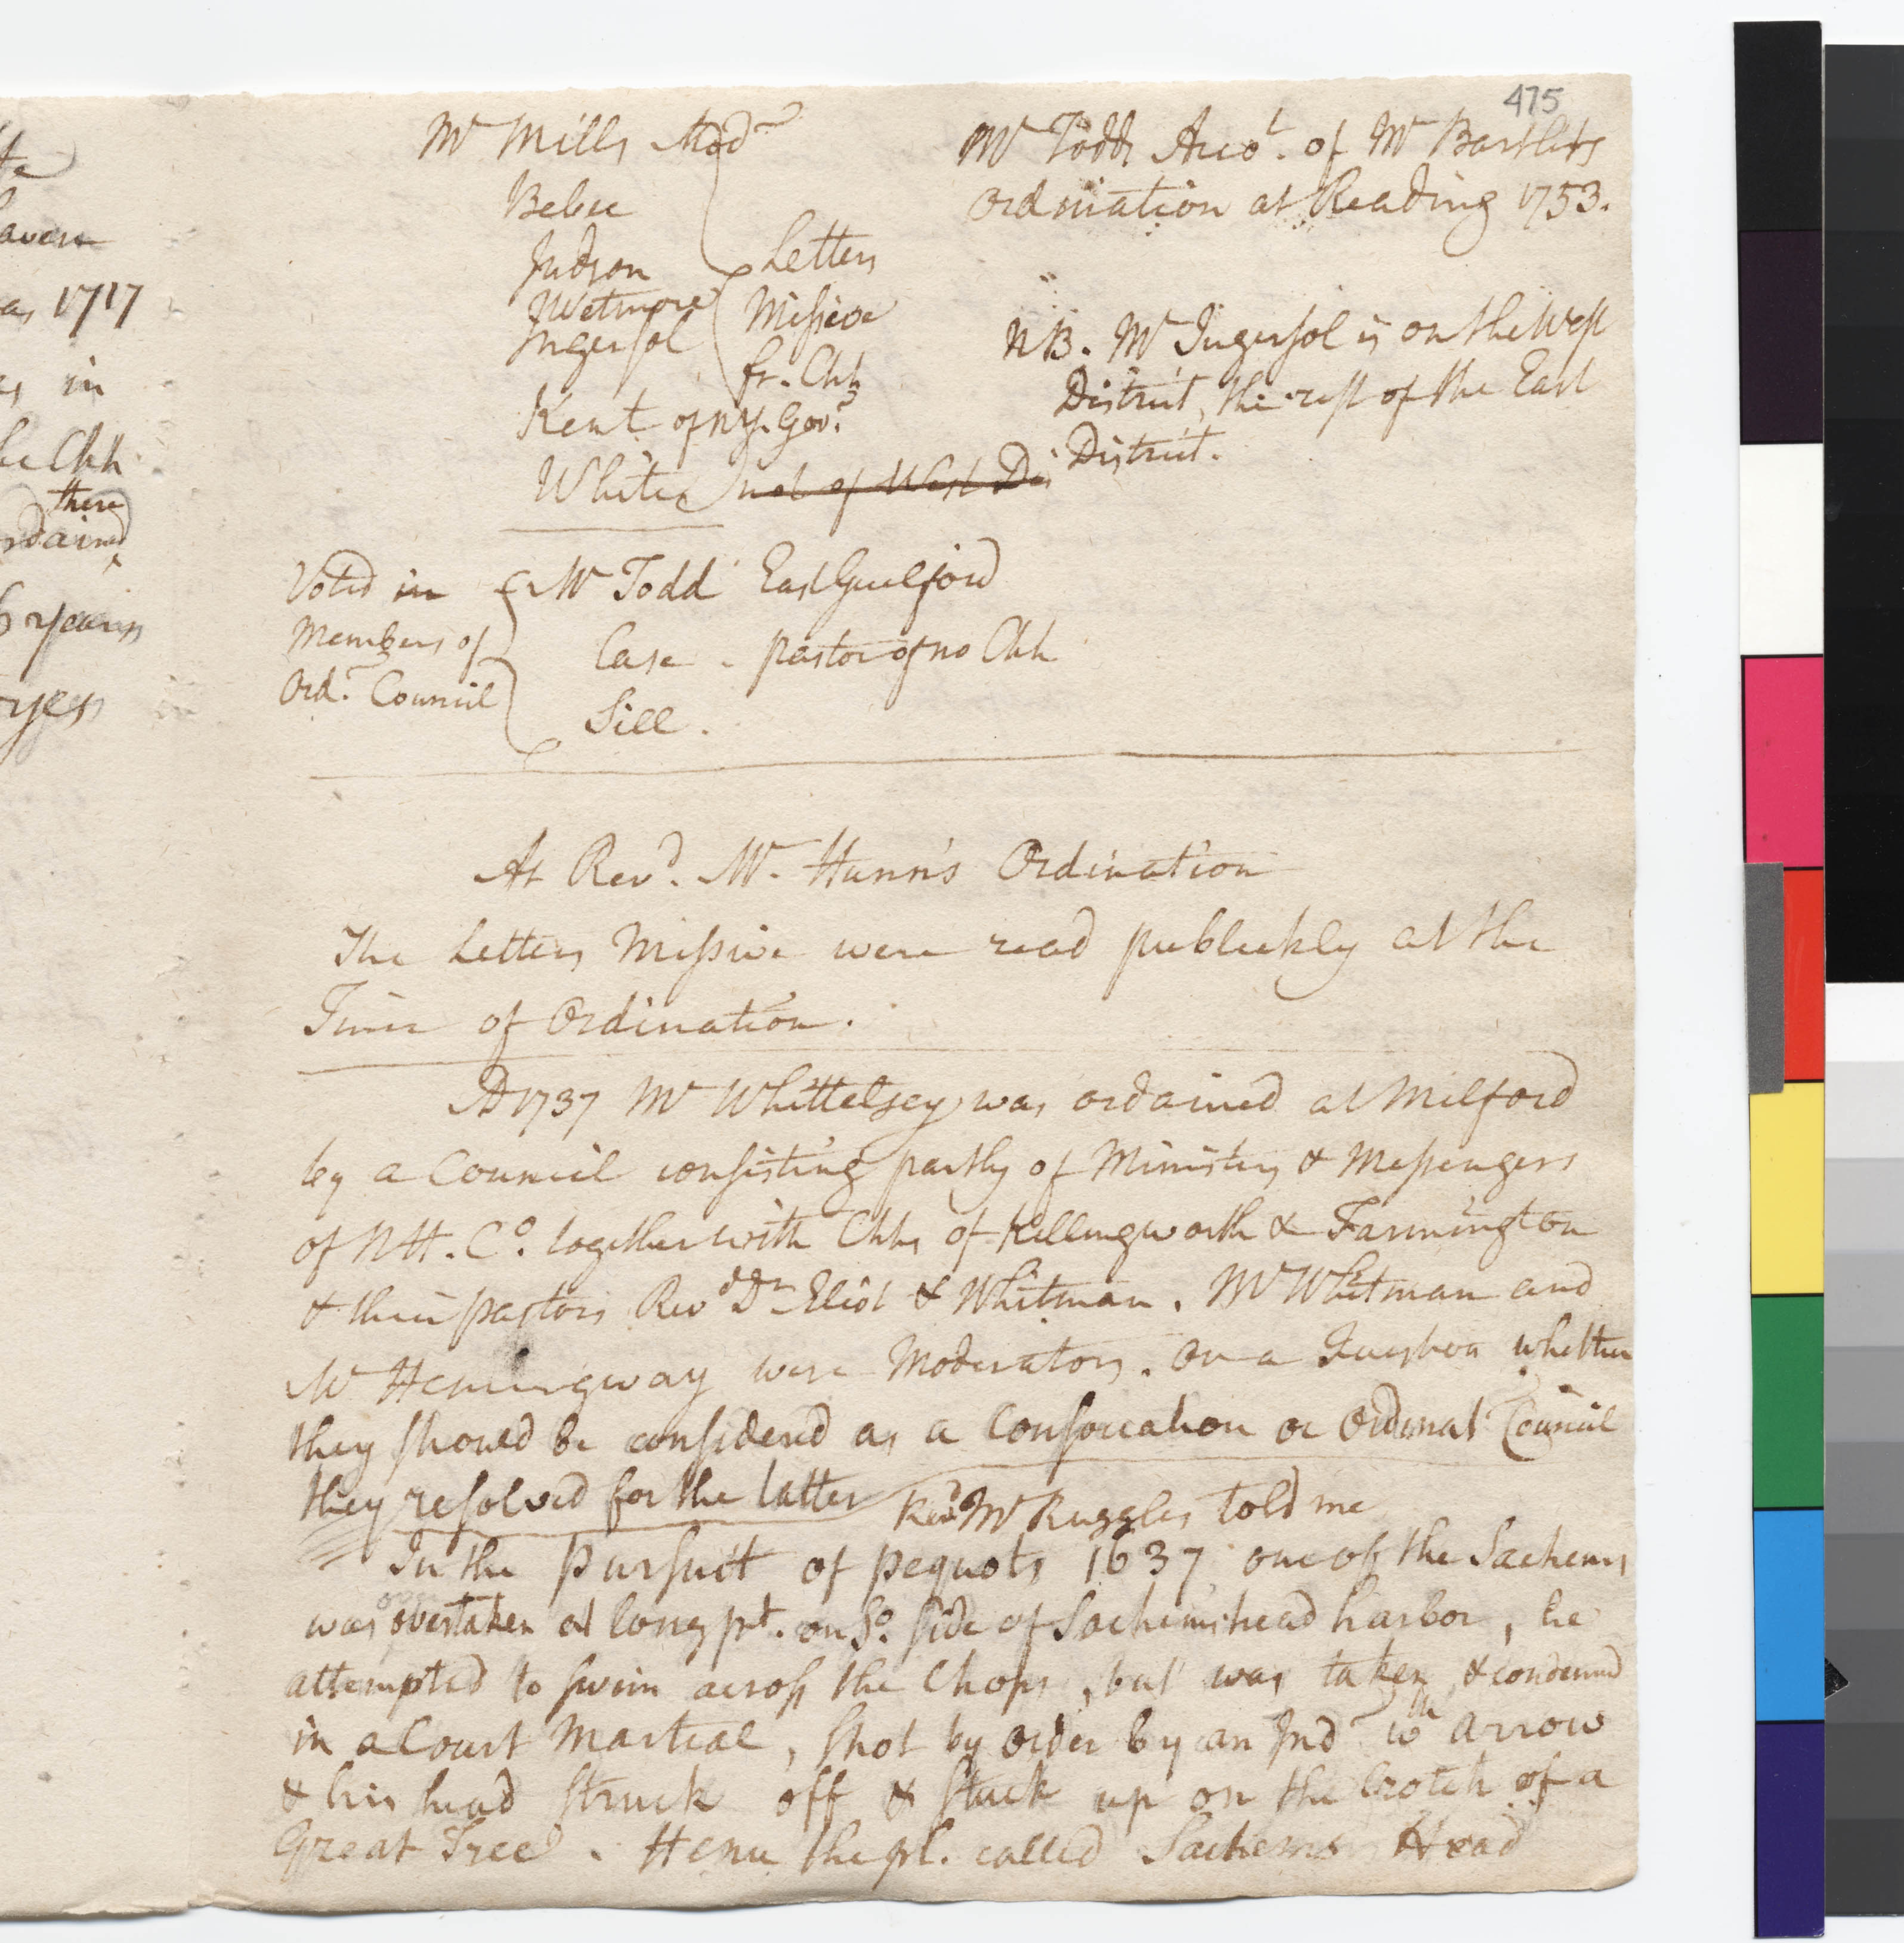 475
Mr Mills Modr
Bebee
Judson
Wetmore
Ingersol
Letters
Missive
fr. Chh
Kent of NY. Govt
White not of West Dis
Mr Todds Acco.t of Mr Bartlets
Ordination at Reading 1753.
NB. Mr Ingersol is on the West
District, the rest of the East
District.
Voted in
Members of
Ord.n Council
Mr Todd East Guilford
Case - pastor of no Chh
Sill.
At Revd. Mr. Hunn's Ordination
The Letters Missive were read publickly at the
Time of Ordination.
AD 1737 Mr Whittelsey was ordained at Milford
by a Council consisting partly of Ministers & Messengers
of NH. Co. together with Chhs of Killingworth & Farmington
& their pastors Revd Dr Eliot & Whitman. Mr Whitman and
Mr Hemingway were Moderators. On a Question whether
they should be considered as a Consociation or Ordinat Council
they resolved for the latter
Revd Mr Ruggles told me
In the pursuit of pequots 1637 one of the Sachems
was overtaken at long pt. on So. side of Sachemshead harbor, he
attempted to swim across the Chops, but was taken & condemned
in a Court Martial, shot by order by an Ind wth arrow
& his head struck off & stuck up on the Crotch of a
Great Tree. Hence the pl. called Sachems Head
aven
as 1717
in
Chh
there
ordained
years